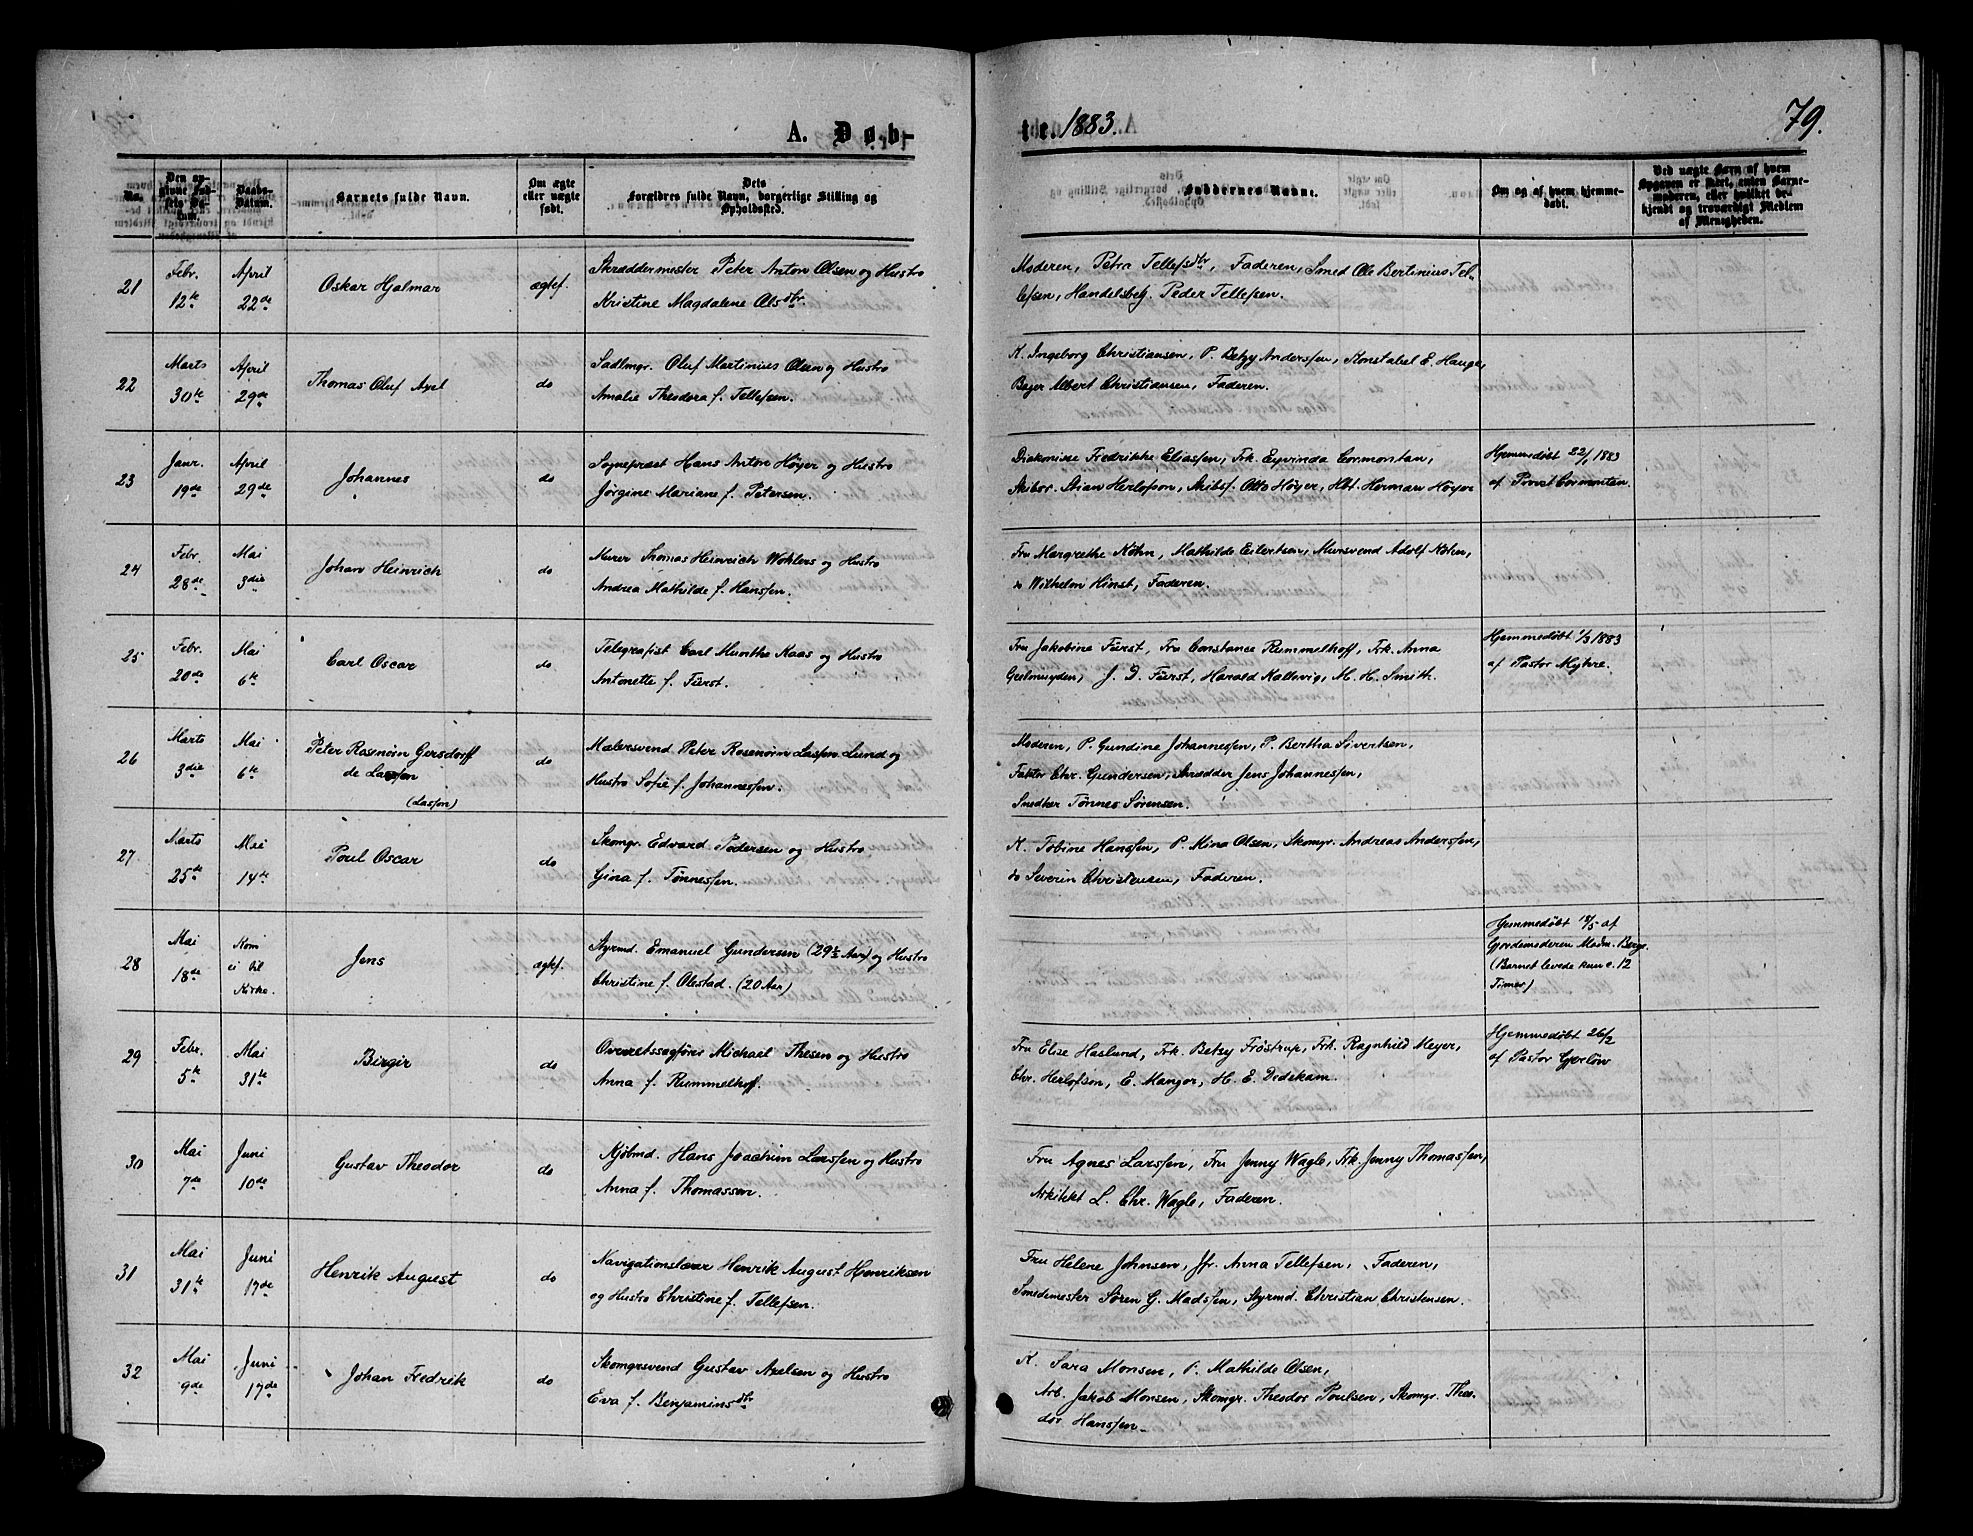 A. Døb-
te. 1883.
79.
No.
Den an-
givne Fød-
sels Da-
tum.
Daabs-
Datum.
Barnets fulde Navn.
Om ægte
eller uægte
født.
Dets
Forældres fulde Navn, borgerlige Stilling og
Opholdssted.
Faddernes Navne.
Om og af hvem hjemme-
døbt.
Ved uægte Børn af hvem
Opgaven er skeet, enten Barne-
moderen, eller hvilket be-
kjendt og troværdigt Medlem
af Menigheden.
21
Febr.
12te
April
22de
Oskar Hjalmar
ægtef.
Skræddermester Peter Anton Olsen og Hustro
Kristine Magdalene Olsdtr.
Moderen, Petra Tellefsdtr, Faderen, Smed Ole Bertinius Tel-
lefsen, Handelsbetj. Peder Tellefsen.
22
Marts
30te
April
29de
Thomas Oluf Axel
do
Sadlmgr. Oluf Martinius Olsen og Hustro
Amalie Theodora f. Tellefsen.
K. Ingeborg Christiansen, P. Betzy Anderssen, Konstabel E. Hauge,
Bager Albert Christiansen, Faderen.
23
Janr.
19de
April
29de
Johannes
do
Sognepræst Hans Anton Høyer og Hustro
Jørgine Mariane f. Petersen.
Diakonisse Fredrikke Eliassen, Frk. Eyvinda Cormontan,
Skibsr. Stian Herlofson, Skibsf. Otto Høyer, Hbt. Herman Høyer
Hjemmedøbt 22/1 1883
af Provst Cormontan.
24
Febr.
28de
Mai
3die
Johan Heinrich
do
Murer Thomas Heinrich Wohlers og Hustro
Andrea Mathilde f. Hanssen.
Fru Margrethe Köhn, Mathilde Eilertsen, Mursvend Adolf Köhn,
do Wilhelm Hinst, Faderen.
25
Febr.
20de
Mai
6te
Carl Oscar
do
Telegrafist Carl Munthe Kaas og Hustro
Antonette f. Fürst.
Fru Jakobine Fürst, Fru Constance Rummelhoff, Frk. Anna
Geelmuyden, J. D. Fürst, Harald Kallevig, M. H. Smith.
Hjemmedøbt 1/3 1883
af Pastor Myhre.
26
Marts
3die
Mai
6te
Peter Rosenørn Gersdorff
de Lassen
(Lasson)
do
Malersvend Peter Rosenørn Lasson Lund og
Hustro Sofie f. Johannessen.
Moderen, P. Gundine Johannessen, P. Bertha Sivertsen,
Faktor Chr. Gundersen, Skrædder Jens Johannessen,
Smedker Tønnes Sørensen.
27
Marts
25de
Mai
14te
Poul Oscar
do
Skomgr. Edvard Pedersen og Hustro
Gina f. Tønnessen.
K. Tobine Hanssen, P. Mina Olsen, Skomgr. Andreas Anderssen,
do Severin Christensen, Faderen.
28
Mai
18de
Kom
ei til
Kirke.
Jens
ægtef.
Styrmd. Emanuel Gundersen (29½ Aar) og Hustro
Christine f. Olestad. (20 Aar)
Hjemmedøbt 18/5 af
Gjordemoderen Madm. Berge.
(Barnet levede kun c. 12
Timer)
29
Febr.
5te
Mai
31te
Birgir
do
Overretssagfører Michael Thesen og Hustro
Anna f. Rummelhoff.
Fru Elise Haslund, Frk. Betsy Frøstrup, Frk. Ragnhild Meyer,
Chr. Herlofson, E. Mangor, H. E. Dedekam.
Hjemmedøbt 26/2
af Pastor Gjerløw
30
Mai
7de
Juni
10de
Gustav Theodor
do
Kjøbmd. Hans Joachim Larssen og Hustro
Anna f. Thomassen.
Fru Agnes Larssen, Fru Jenny Wagle, Frk. Jenny Thomassen,
Arkitekt L. Chr. Wagle, Faderen.
31
Mai
31te
Juni
17de
Henrik August
do
Navigationslærer Henrik August Henriksen
og Hustro Christine f. Tellefsen.
Fru Helene Johnsen, Jfr. Anna Tellefsen, Faderen,
Smedemester Søren G. Madssen, Styrmd. Christian Christensen.
32
Mai
9de
Juni
17de
Johan Fredrik
do
Skomgrsvend Gustav Axelsen og Hustro
Eva f. Benjaminsdtr
K. Sara Monsen, P. Mathilde Olsen,
Arb. Jakob Monsen, Skomgr. Theodor Poulsen, Skomgr. Theo-
dor Hanssen.